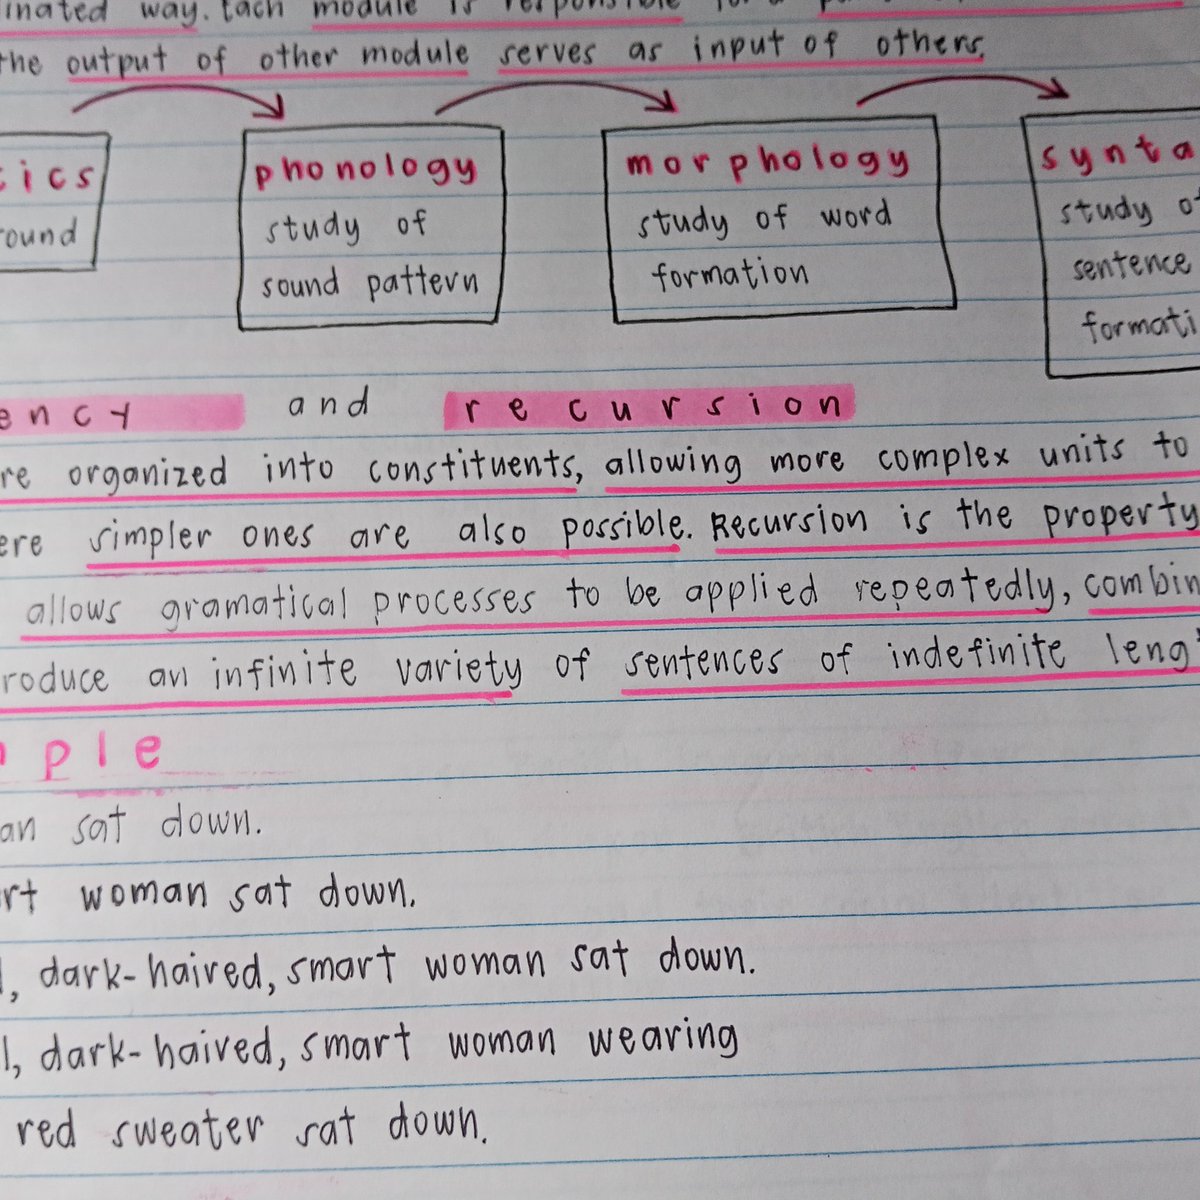 way. Each module is responsible for a
the output of other module serves as input of others.
phonology morphology
study of study of word study
sound pattern formation sentence
and recursion
organized into constituents, allowing more complex units to
simpler ones are also possible. Recursion is the property
allows gramatical processes to be applied repeatedly,
an infinite variety of sentences of indefinite
sat down.
woman sat down.
dark-haired, smart woman sat down.
dark-haired, smart woman wearing
red sweater sat down.